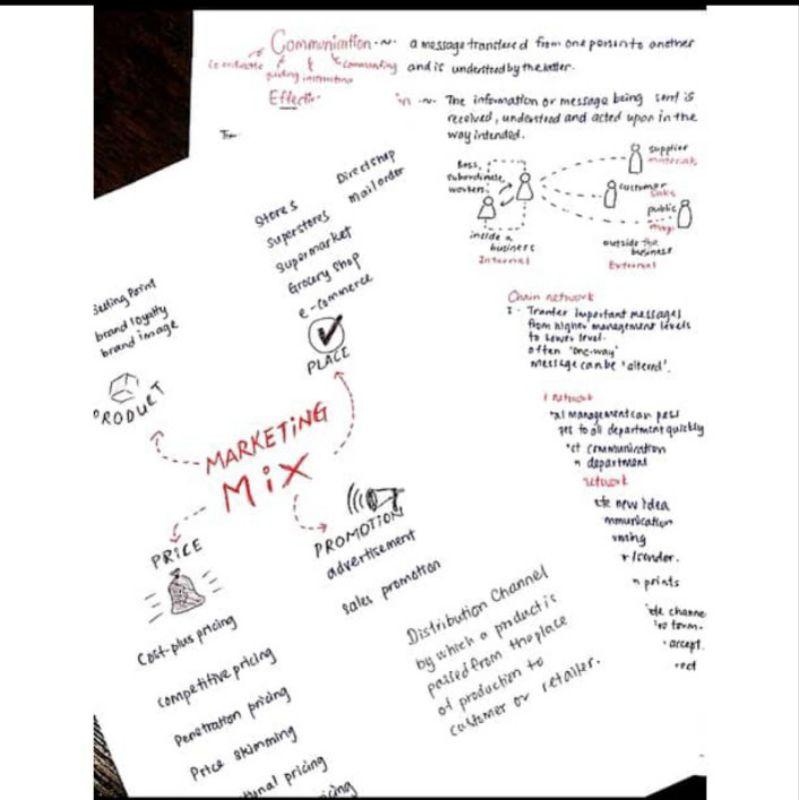 Communication - a message transfered from one person to another
and is understood by the latter.
guiding instructing commanding
Effectiv
in - The information or message being sent is
received, understood and acted upon in the
way intended.
Boss,
subordinate,
workers.
inside a
business
Internal
supplier
materials
customer
sales
public
outside the
business
External
Chain network
Tranfer important messages
from higher management levels
to lower level.
often "one-way"
message can be "altered".
network
al management can pass
ges to all department quickly
ct communication
n department
network
te new idea
mmunication
ming
r/sender.
n prints
channe
to form.
accept.
rect
Direct shop
mail order
Stores
superstores
supermarket
Grocery shop
e-commerce
PLACE
Selling Point
brand loyalty
brand image
PRODUCT
MARKETING
MiX
PRICE
Cost-plus pricing
competitive pricing
Penetration pricing
Price skimming
onal pricing
icing
PROMOTION
advertisement
sales promotion
Distribution Channel
by which a product is
passed from the place
of production to
customer or retailer.